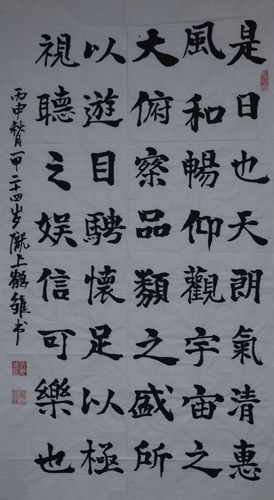 是日也天朗氣清惠
風和暢仰觀宇宙之
大俯察品類之盛所
以遊目騁懷足以極
視聽之娱信可樂也
丙申
甲二十四歲隴上鶴雏书